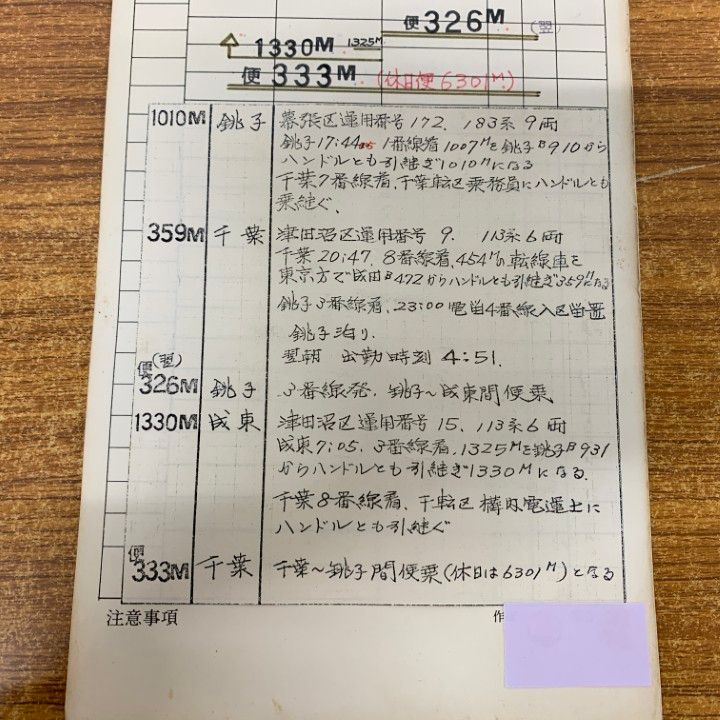 便326M (翌)
1330M 1325M
便333M (休日便6301M)
1010M 銚子 幕張区運用番号172. 183系9両
銚子17:44 1番線着1007Mを銚子B910から
ハンドルとも引継ぎ1010Mになる
千葉7番線着、千葉転区乗務員にハンドルとも
乗継ぐ、
359M 千葉 津田沼区運用番号 9. 113系6両
千葉20:47. 8番線着、454Mの転線車を
東京方で成田B472からハンドルとも引継ぎ359Mになる
銚子3番線着、23:00 4番線入区留置
銚子泊り.
翌朝 出勤時刻 4:51.
便(翌)
326M 銚子 3番線発. 銚子〜成東間便乗
1330M 成東 津田沼区運用番号15. 113系6両
成東7:05. 3番線着、1325Mを銚子B931
からハンドルとも引継ぎ1330Mになる.
千葉8番線着、千転区構内電運士に
ハンドルとも引継ぐ
便
333M 千葉 千葉〜銚子間便乗(休日は6301M)となる
注意事項 作